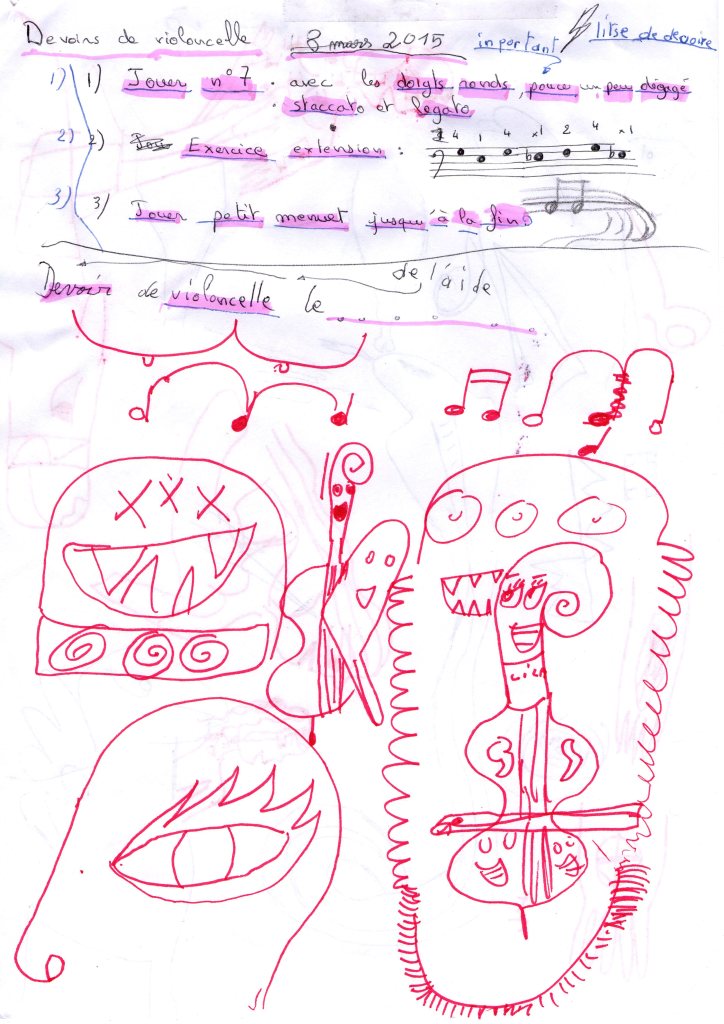 Devoirs de violoncelle 8 mars 2015 important litse de devoire
1) 1) Jouer n°7 . avec les doigts ronds, pouce un peu dégagé
. staccato et legato
2) 2) Exercice extension : 4 1 4 x1 2 4 x1
3) 3) Jouer petit menuet jusqu'à la fin
de l'áide
Devoir de violoncelle le